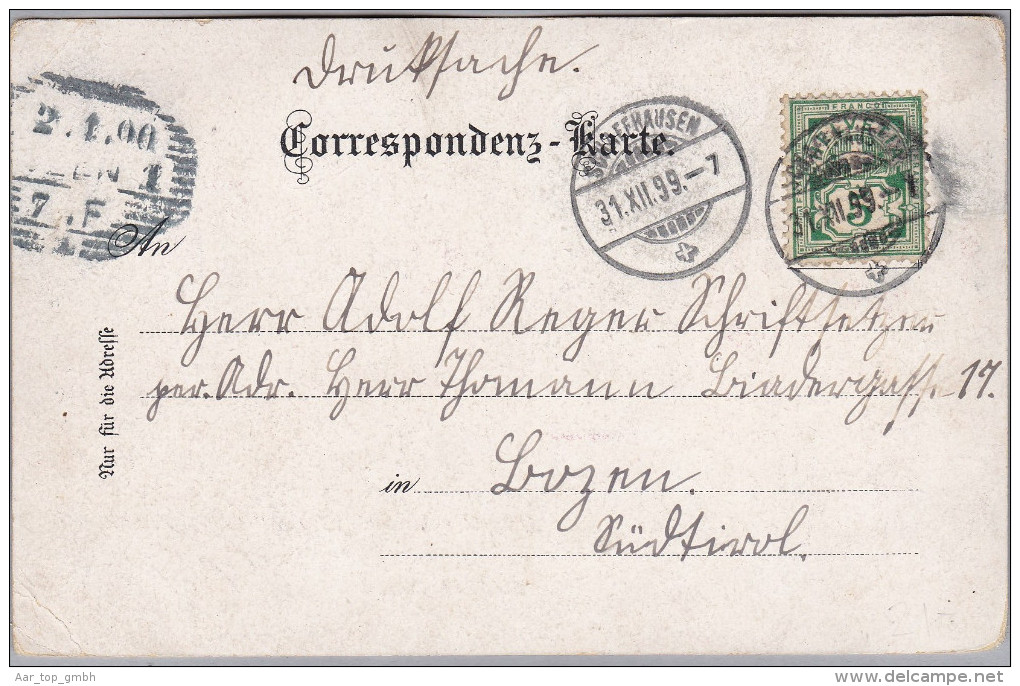 Drucksache.
Correspondenz-Karte.
SCHAFFHAUSEN
31.XII.99.-7
FRANCO
5
31.XII.99.-7
2.1.00
1
7.F
An
Herr Adolf Reger Schriftsetzer
per. Adr. Herr Thomann Bindergasse 17.
in Bozen.
Südtirol.
Nur für die Adresse
Aar_top_gmbh
www.delcampe.net